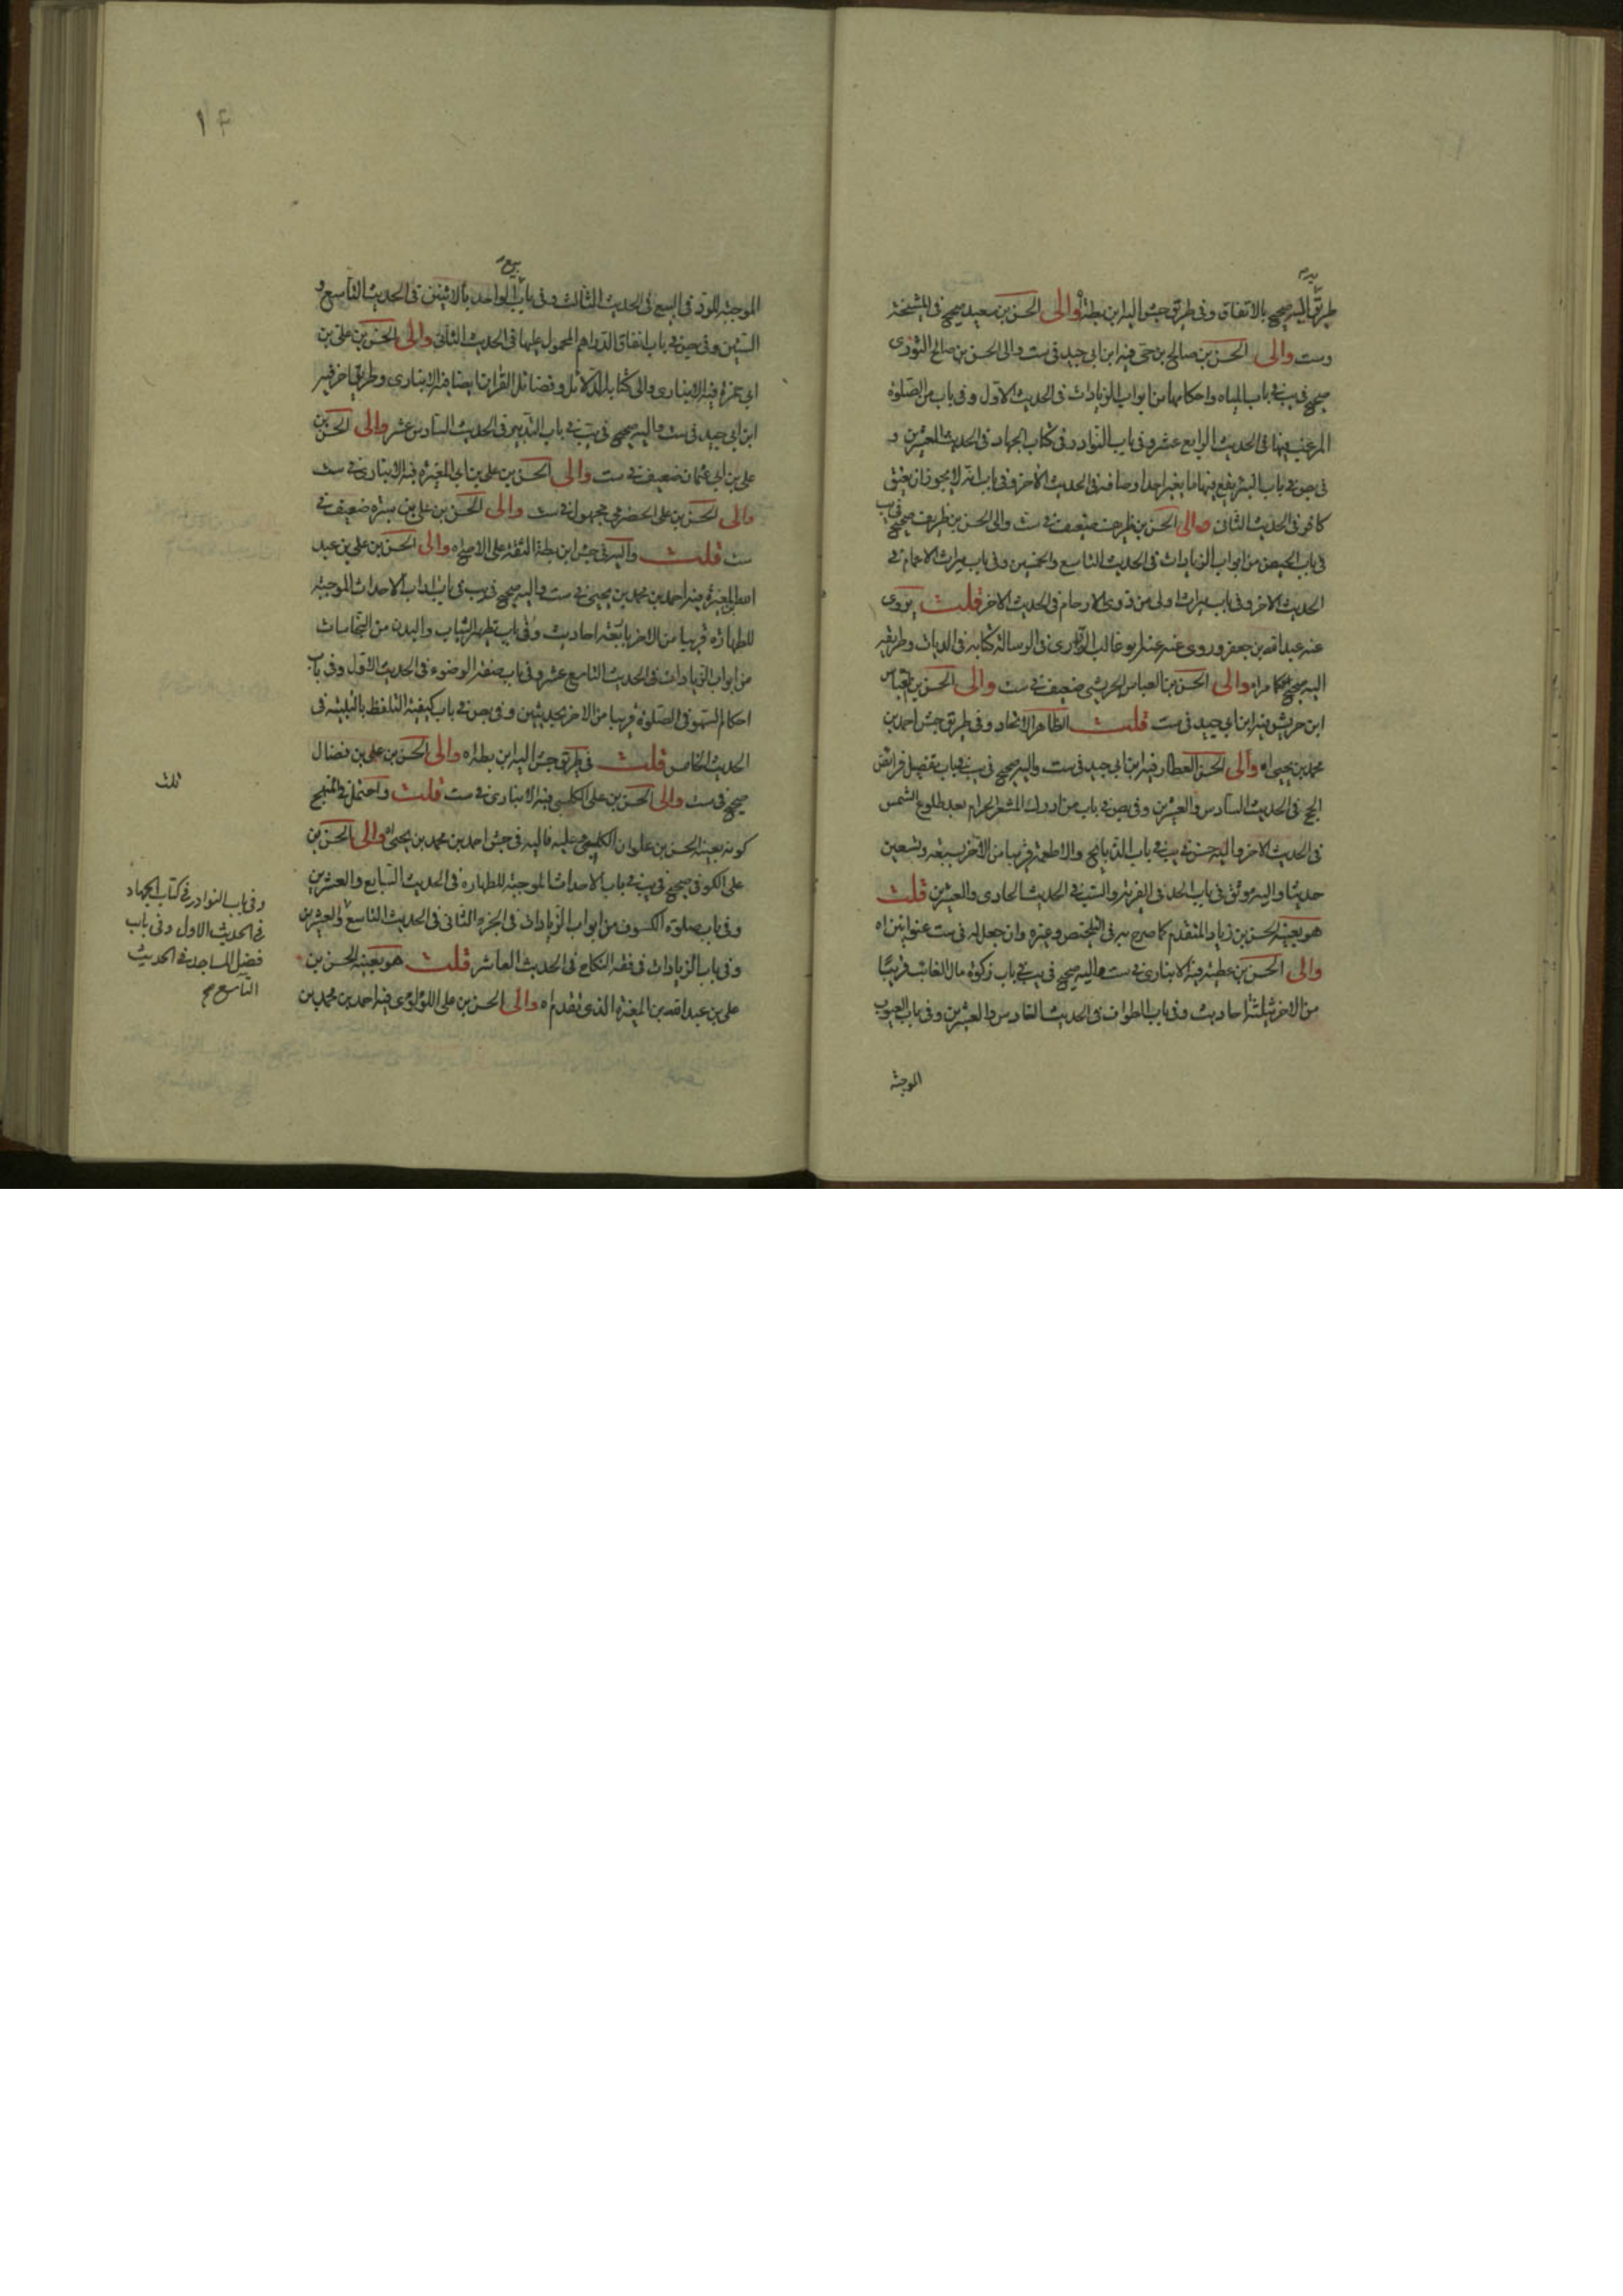 طريق اليه صحيح بالاتفاق وفى طريق جش اليه ابن بطة والى الحسن بن سعيد صحيح فى المشيخة
وست والى الحسن بن صالح بن حى فيه ابن ابى جيد فى ست والى الحسن بن صالح الثورى
صحيح فى يب فى باب المياه واحكامها من ابواب الزيادات فى الحديث الاول وفى باب من الصلوة
المرغب فيها فى الحديث الرابع عشر وفى باب النوادر فى كتاب الجهاد فى الحديث العشرين و
فى بص فى باب البئر يقع فيها ما يغير احد اوصافه فى الحديث الاخر وفى باب انه لا يجوز ان يعتق
كافر فى الحديث الثانى والى الحسن بن ظريف ضعيف فى ست والى الحسن بن ظريف صحيح فى يب
فى باب الحيض من ابواب الزيادات فى الحديث التاسع والخمسين وفى باب ميراث الاعمام فى
الحديث الاخر وفى باب ميراث اولى من ذوى الارحام فى الحديث الاخر قلت يروى
عنه عبد الله بن جعفر وروى عنه ابو غالب الزرارى فى الرسالة كتابه فى الديات وطريقه
اليه صحيح كما مر اه والى الحسن بن العباس الحريشى ضعيف فى ست والى الحسن بن العباس
ابن حريش فيه ابن ابى جيد فى ست قلت الظاهر الاتحاد وفى طريق جش احمد بن
محمد بن يحيى اه والى الحسن العطار فيه ابن ابى جيد فى ست واليه صحيح فى يب فى باب تفصيل فرائض
الحج فى الحديث السادس والعشرين وفى بص فى باب من ادرك المشعر الحرام بعد طلوع الشمس
فى الحديث الاخر واليه حسن فى يب فى باب الذبايح والاطعمة قريبا من الآخر بسبعة وتسعين
حديثا واليه موثق فى باب الحد فى الفرية والسب فى الحديث الحادى والعشرين قلت
هو بعينه الحسن بن زياد المتقدم كما صرح به فى التلخيص وغيره وان جعل له فى ست عنوانين اه
والى الحسن بن عطية فيه الانبارى فى ست واليه صحيح فى يب فى باب زكوة مال الغائب قريبا
من الاخر بثلثة احاديث وفى باب الطواف فى الحديث السادس والعشرين وفى باب العيوب
الموجبة
١۴
الموجبة للرد فى البيع فى الحديث الثالث وفى باب بيع الواحد بالاثنين فى الحديث التاسع و
الستين وفى بص فى باب انفاق الدراهم المحمول عليها فى الحديث الثانى والى الحسن بن على بن
ابى حمزة فيه الانبارى والى كتابه الدلائل وفضائل القران ايضا فيه الانبارى وطريق اخر فيه
ابن ابى جيد فى ست واليه صحيح فى يب فى باب التدبير فى الحديث السادس عشر والى الحسن بن
على بن ابى عثمان ضعيف فى ست والى الحسن بن على بن ابى المغيرة فيه الانبارى فى ست
والى الحسن بن على الحضرمى مجهول فى ست والى الحسن بن على بن سبرة ضعيف فى
ست قلت واليه فى جش ابن بطة الثقة على الاصح اه والى الحسن بن على بن عبد
الله المغيرة فيه احمد بن محمد بن يحيى فى ست واليه صحيح فى يب فى باب اداب الاحداث الموجبة
للطهارة قريبا من الاخر باربعة احاديث وفى باب تطهير الثياب والبدن من النجاسات
من ابواب الزيادات فى الحديث التاسع عشر وفى باب صفة الوضوء فى الحديث الاول وفى باب
احكام السهو فى الصلوة قريبا من الاخر بحديثين وفى بص فى باب كيفية التلفظ بالتلبية فى
الحديث الخامس قلت فى طريق جش اليه ابن بطة اه والى الحسن بن على بن فضال
صحيح فى ست والى الحسن بن على الكلبى فيه الانبارى فى ست قلت واحتمل فى المنهج
كونه بعينه الحسن بن علوان الكلبى وعليه فاليه فى جش احمد بن محمد بن يحيى اه والى الحسن بن
على الكوفى صحيح فى يب فى باب الاحداث الموجبة للطهارة فى الحديث السابع والعشرين
وفى باب صلوة الكسوف من ابواب الزيادات فى الجزء الثانى فى الحديث التاسع والعشرين
وفى باب الزيادات فى فقه النكاح فى الحديث العاشر قلت هو بعينه الحسن بن
على بن عبد الله بن المغيرة الذى تقدم اه والى الحسن بن على اللؤلؤى فيه احمد بن محمد بن
ثلث
وفى باب النوادر فى كتاب الجهاد
فى الحديث الاول وفى باب
فضل المساجد فى الحديث
التاسع صح